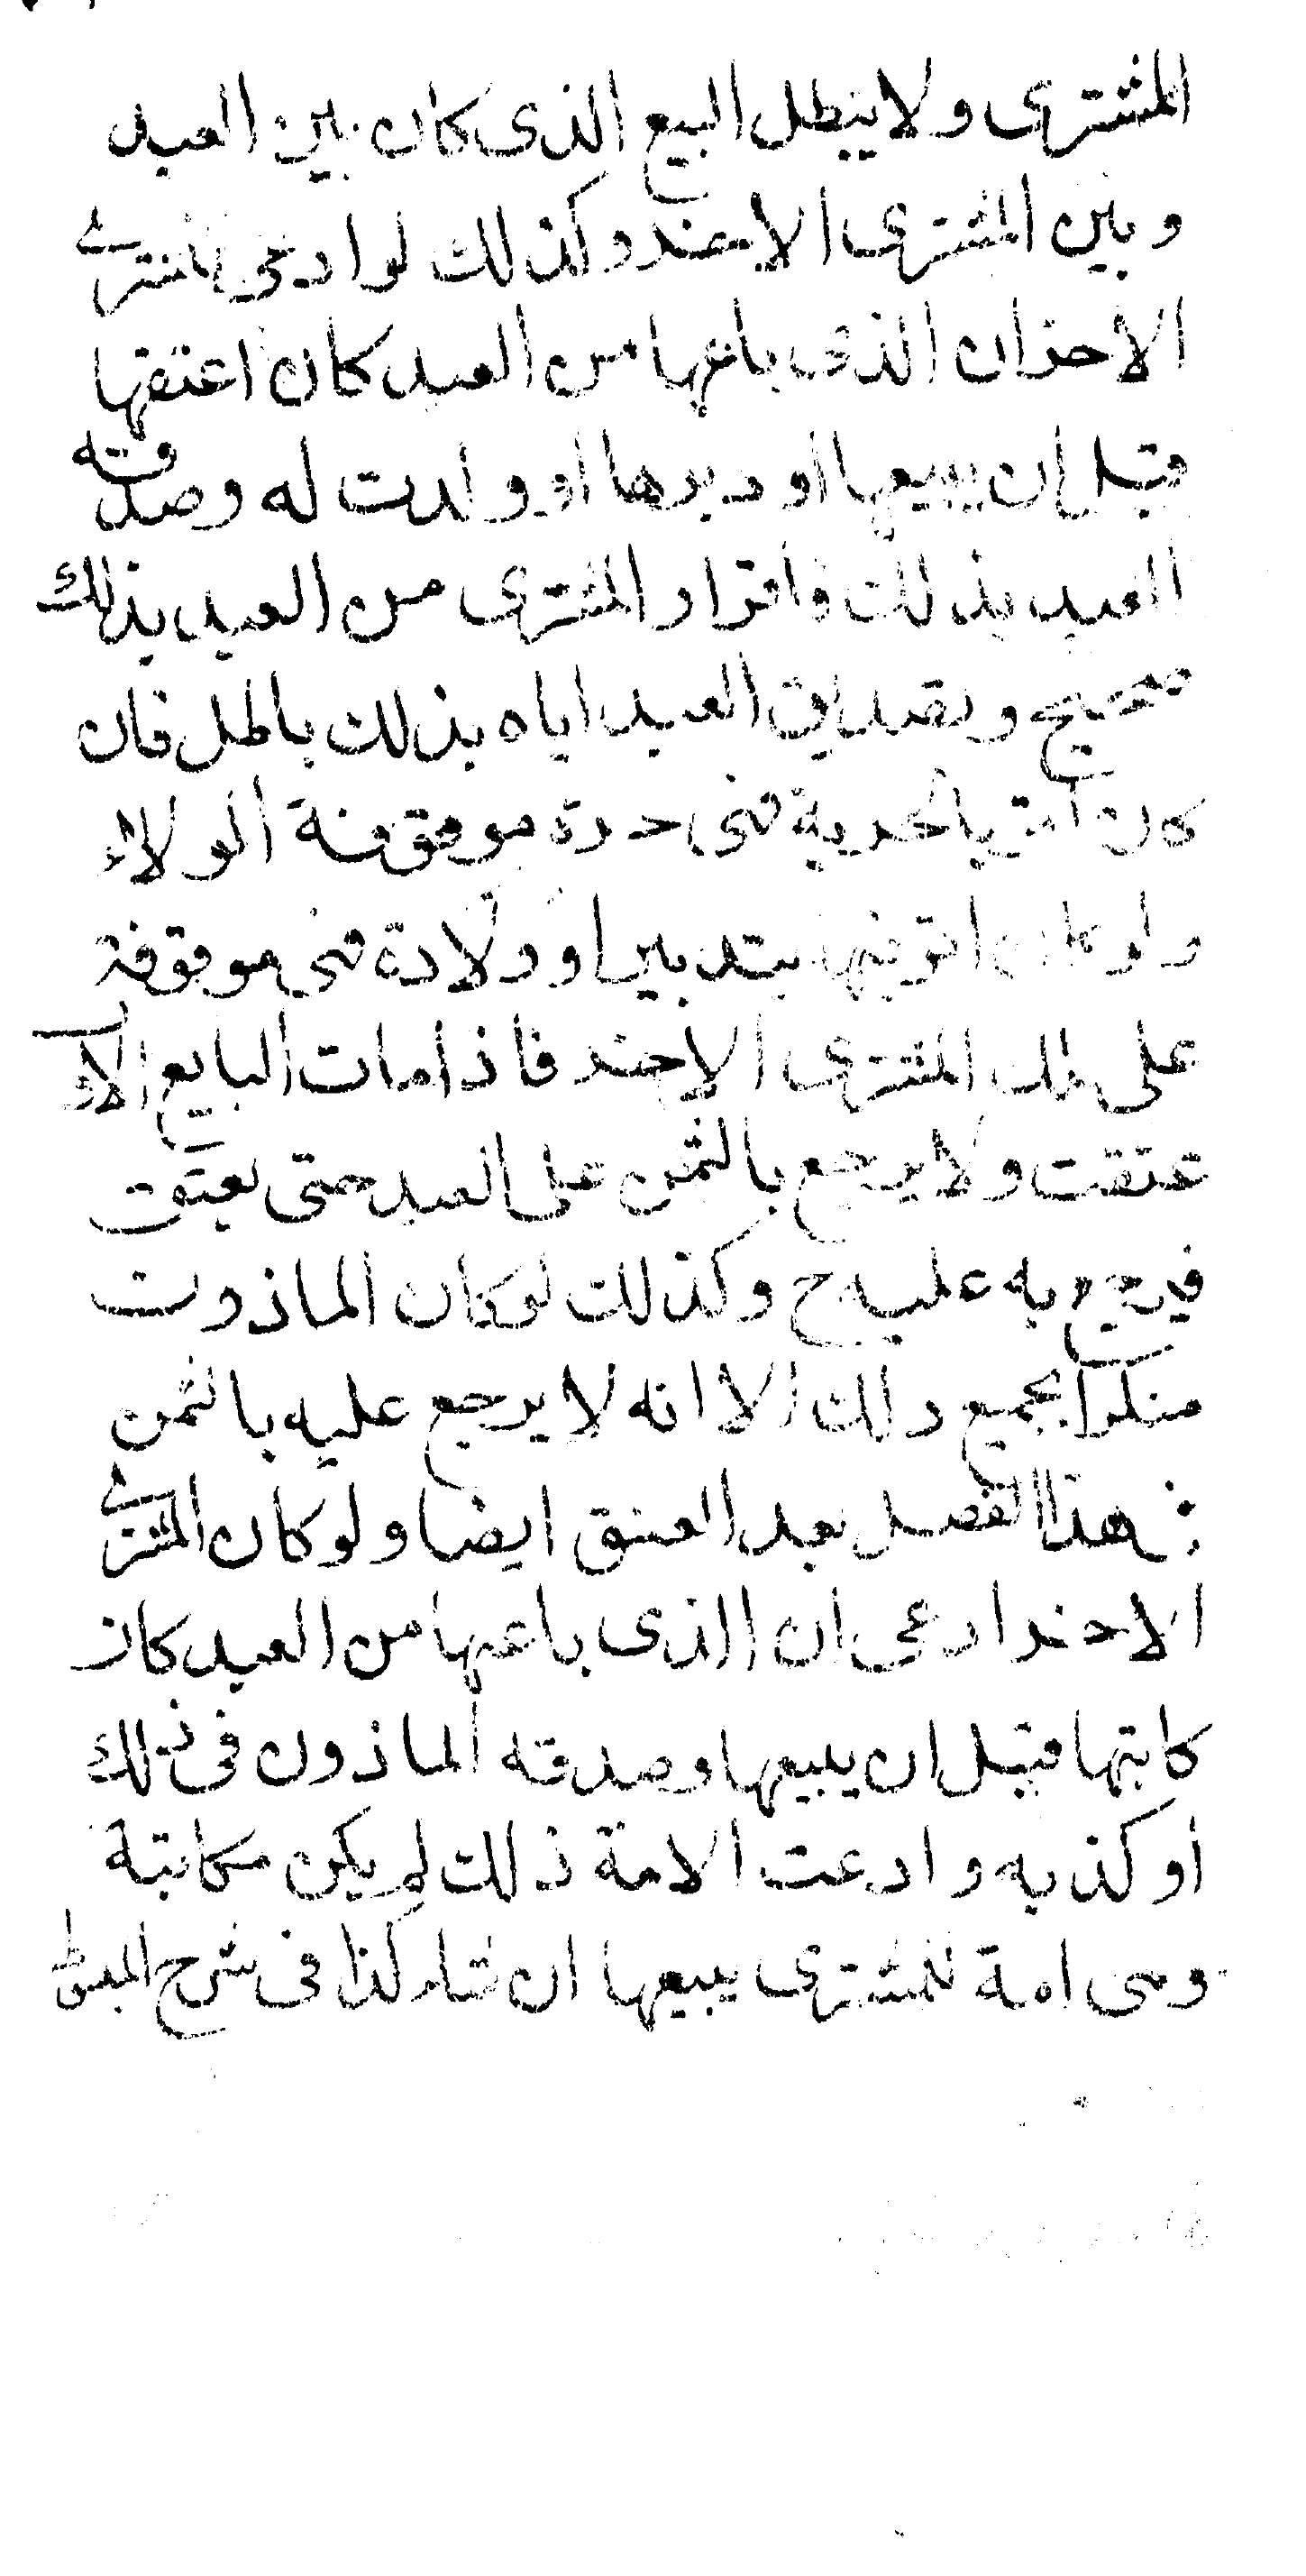 المشترى ولا يبطل البيع الذى كان بين العبد
وبين المشترى الاخر وكذلك لو ادعى المشترى
الاخر ان الذى باعها من العبد كان اعتقها
قبل ان يبيعها او دبرها او ولدت له وصدقه
العبد بذلك فاقرار المشترى من العبد بذلك
صحيح وتصديق العبد اياه بذلك باطل فان
كان اقر بالحرية فهى حرة موقوفة الولاء
ولو كان اقر فيها بتدبير او ولادة فهى موقوفة
على ملك المشترى الاخر فاذا مات البايع الاول
عتقت ولا يرجع بالثمن على العبد حتى يعتق
فيرجع به عليه ح وكذلك لو كان الماذون
منكرا بجميع ذلك الا انه لا يرجع عليه بالثمن
فى هذا الفصل بعد العتق ايضا ولو كان المشترى
الاخر ادعى ان الذى باعها من العبد كان
كاتبها قبل ان يبيعها وصدقه الماذون فى ذلك
او كذبه وادعت الامة ذلك لم يكن مكاتبة
وهى امة للمشترى يبيعها ان شاء كذا فى شرح المبسوط